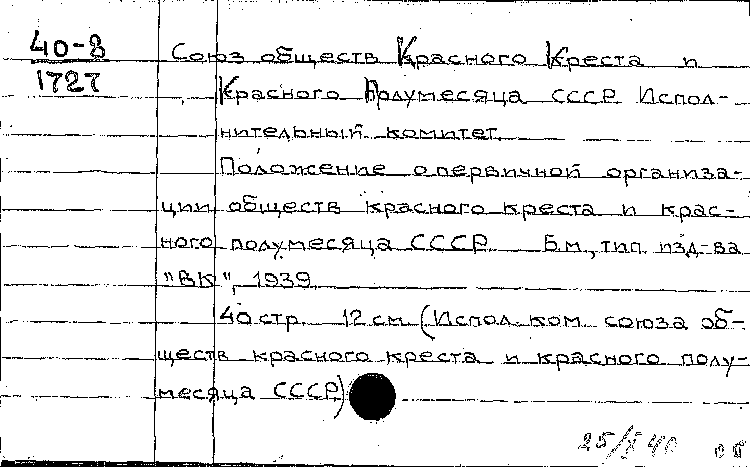 40-8
1727
Союз обществ Красного Креста и
Красного Полумесяца СССР. Испол-
нительный комитет.
Положение о первичной организа-
ции обществ красного креста и крас-
ного полумесяца СССР Б.м., тип. изд-ва
"ВК", 1939.
40 стр. 12 см. (Испол. ком. союза об-
ществ красного креста и красного полу-
месяца СССР)
25/X 40